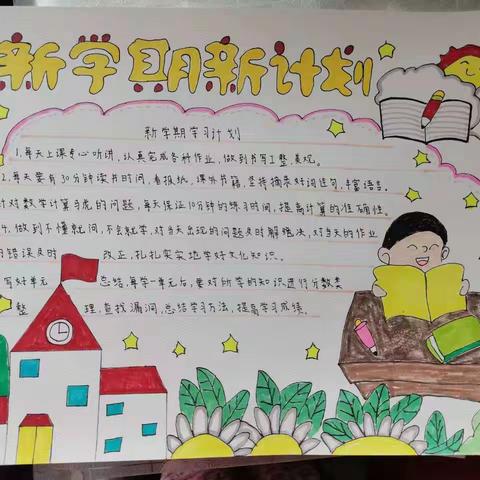 新学期新计划
新学期学习计划
1.每天上课专心听讲,认真完成各种作业,做到书写工整、美观。
2.每天要有30分钟读书时间,看报纸,课外书籍,坚持摘录好词佳句,丰富语言。
针对数学计算马虎的问题,每天保证10分钟的练习时间,提高计算的准确性。
4.做到不懂就问,不会就学,对当天出现的问题及时解决,对当天的作业
的错误及时 改正,扎扎实实地学好文化知识。
写好单元 总结,每学一单元后,要对所学的知识进行分数类
整 理,查找漏洞,总结学习方法,提高学习成绩。